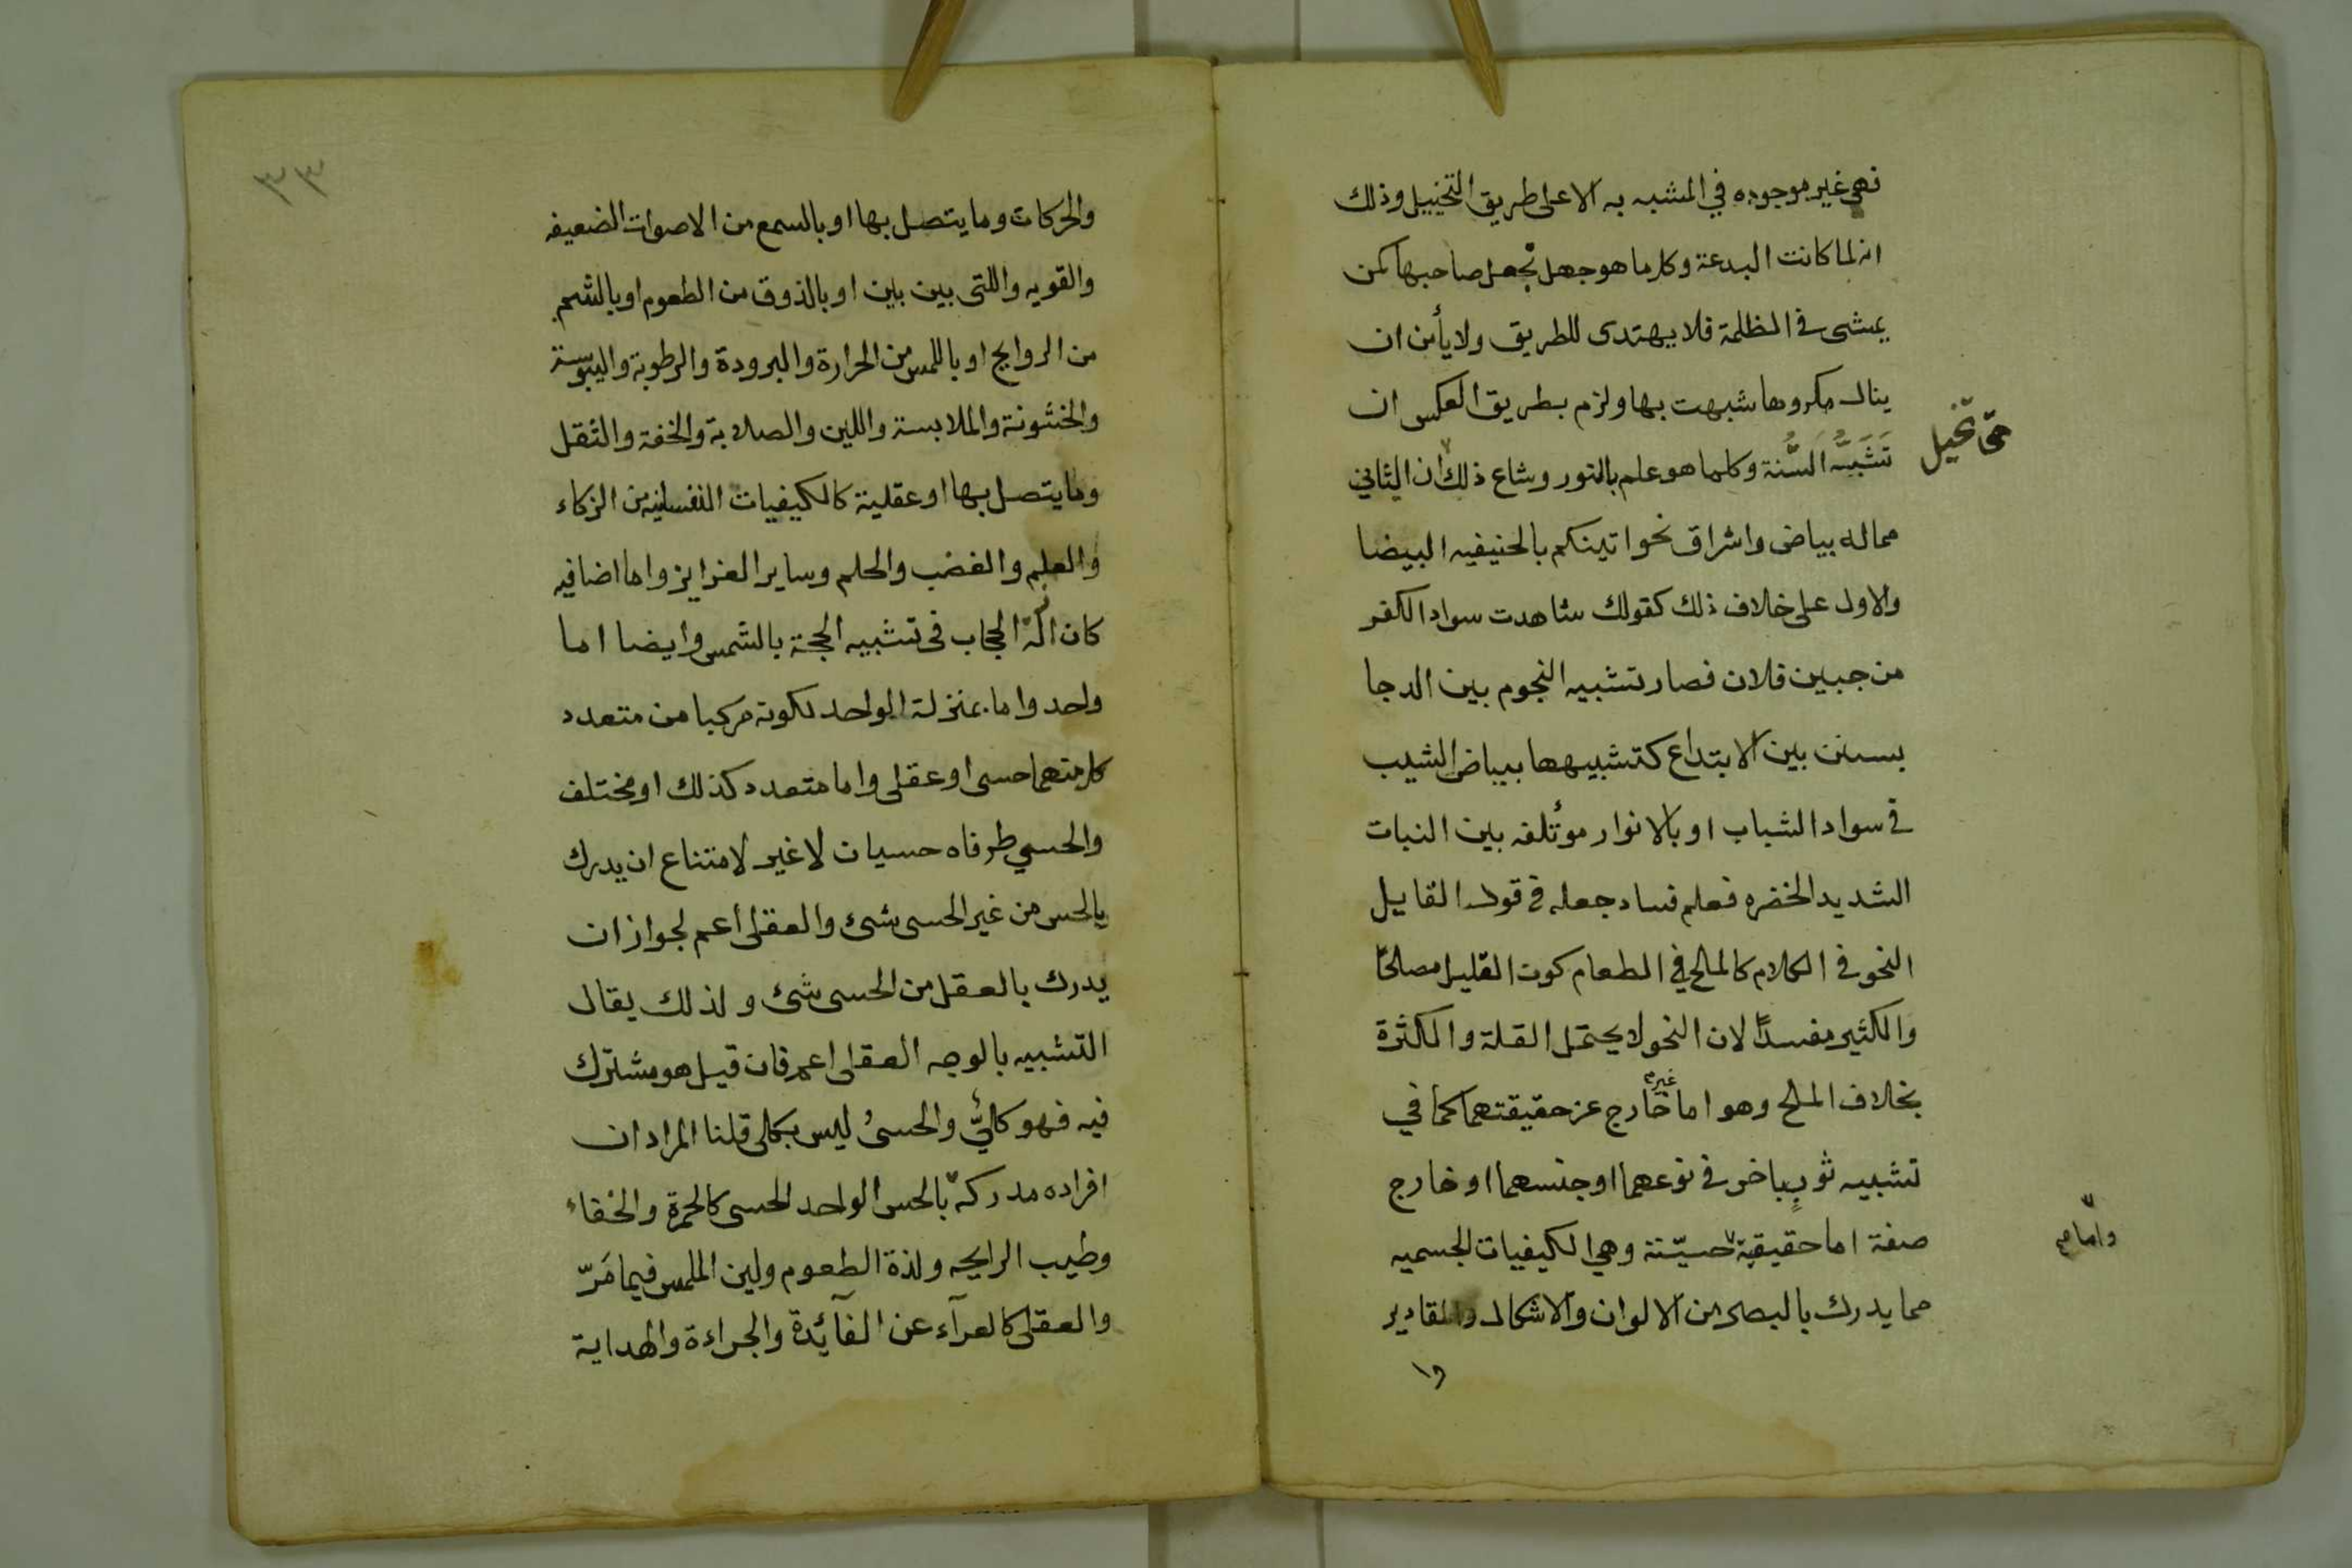 فهى غير موجوده في المشبه به الا على طريق التخييل وذلك
انه لما كانت البدعة وكل ما هو جهل تجعل صاحبها كمن
يمشى في الظلمة فلا يهتدى للطريق ولا يأمن ان
ينال مكروها شبهت بها ولزم بطريق العكس ان
تشبه السُّنة وكلما هو علم بالنور وشاع ذلك ان الثاني
تخيل
مماله بياض واشراق نحو اتيتكم بالحنيفيه البيضا
والاول على خلاف ذلك كقولك شاهدت سواد الكفر
من جبين فلان فصار تشبيه النجوم بين الدجا
بسنن بين الابتداع كتشبيهها ببياض الشيب
في سواد الشباب او بالانوار موتلفه بين النبات
الشديد الخضره فعلم فساد جعله في قول القايل
النحو في الكلام كالملح في الطعام كون القليل مصلحًا
والكثير مفسدًا لان النحو لا يحتمل القلة والكثرة
بخلاف الملح وهو اما غير خارج عن حقيقتهما كما في
تشبيه ثوبٍ باخر في نوعهما او جنسهما او خارج
صفة اما حقيقية حسيّة وهي الكيفيات الجسميه
واما
مما يدرك بالبصر من الالوان والاشكال والمقادير
وا
٣٣
والحركات وما يتصل بها او بالسمع من الاصوات الضعيفه
والقويه واللتى بين بين او بالذوق من الطعوم او بالشم
من الروايح او باللمس من الحرارة والبرودة والرطوبة واليبوسة
والخشونة والملابسة واللين والصلابة والخفة والثقل
وما يتصل بها او عقلية كالكيفيات النفسانيه من الزكاء
والعلم والغضب والحلم وساير الغرايز واما اضافيه
كازالة الحجاب في تشبيه الحجة بالشمس وايضا اما
واحد واما بمنزلة الواحد لكونه مركبا من متعدد
كل منهما حسى او عقلى واما متعدد كذلك او مختلف
والحسي طرفاه حسيان لا غير لامتناع ان يدرك
بالحس من غير الحسى شئ والعقلى أعم لجواز ان
يدرك بالعقل من الحسى شئ ولذلك يقال
التشبيه بالوجه العقلى اعم فان قيل هو مشترك
فيه فهو كليٌّ والحسىُ ليس بكلى قلنا المراد ان
افراده مدركة بالحس الواحد الحسى كالحمرة والخفاء
وطيب الرايحه ولذة الطعوم ولين الملمس فيما مَرّ
والعقلى كالعرآء عن الفآئدة والجراءة والهداية